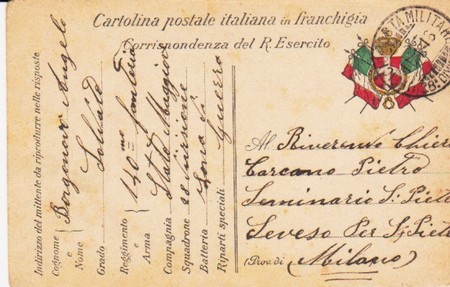 Cartolina postale italiana in franchigia
Corrispondenza del R. Esercito
TA MILITAR
Indirizzo del mittente da riprodurre nelle risposte
Cognome e Nome Borgonovo Angelo
Grado Soldato
Reggimento e Arma 140mo fanteria
Compagnia Stato Maggiore
Squadrone 28 Divisione
Batteria Zona di
Riparti speciali Guerra
Al Riverente Chieri
Carcano Pietro
Seminario S. Piet
Seveso Per S. Piet
(Prov. di Milano)